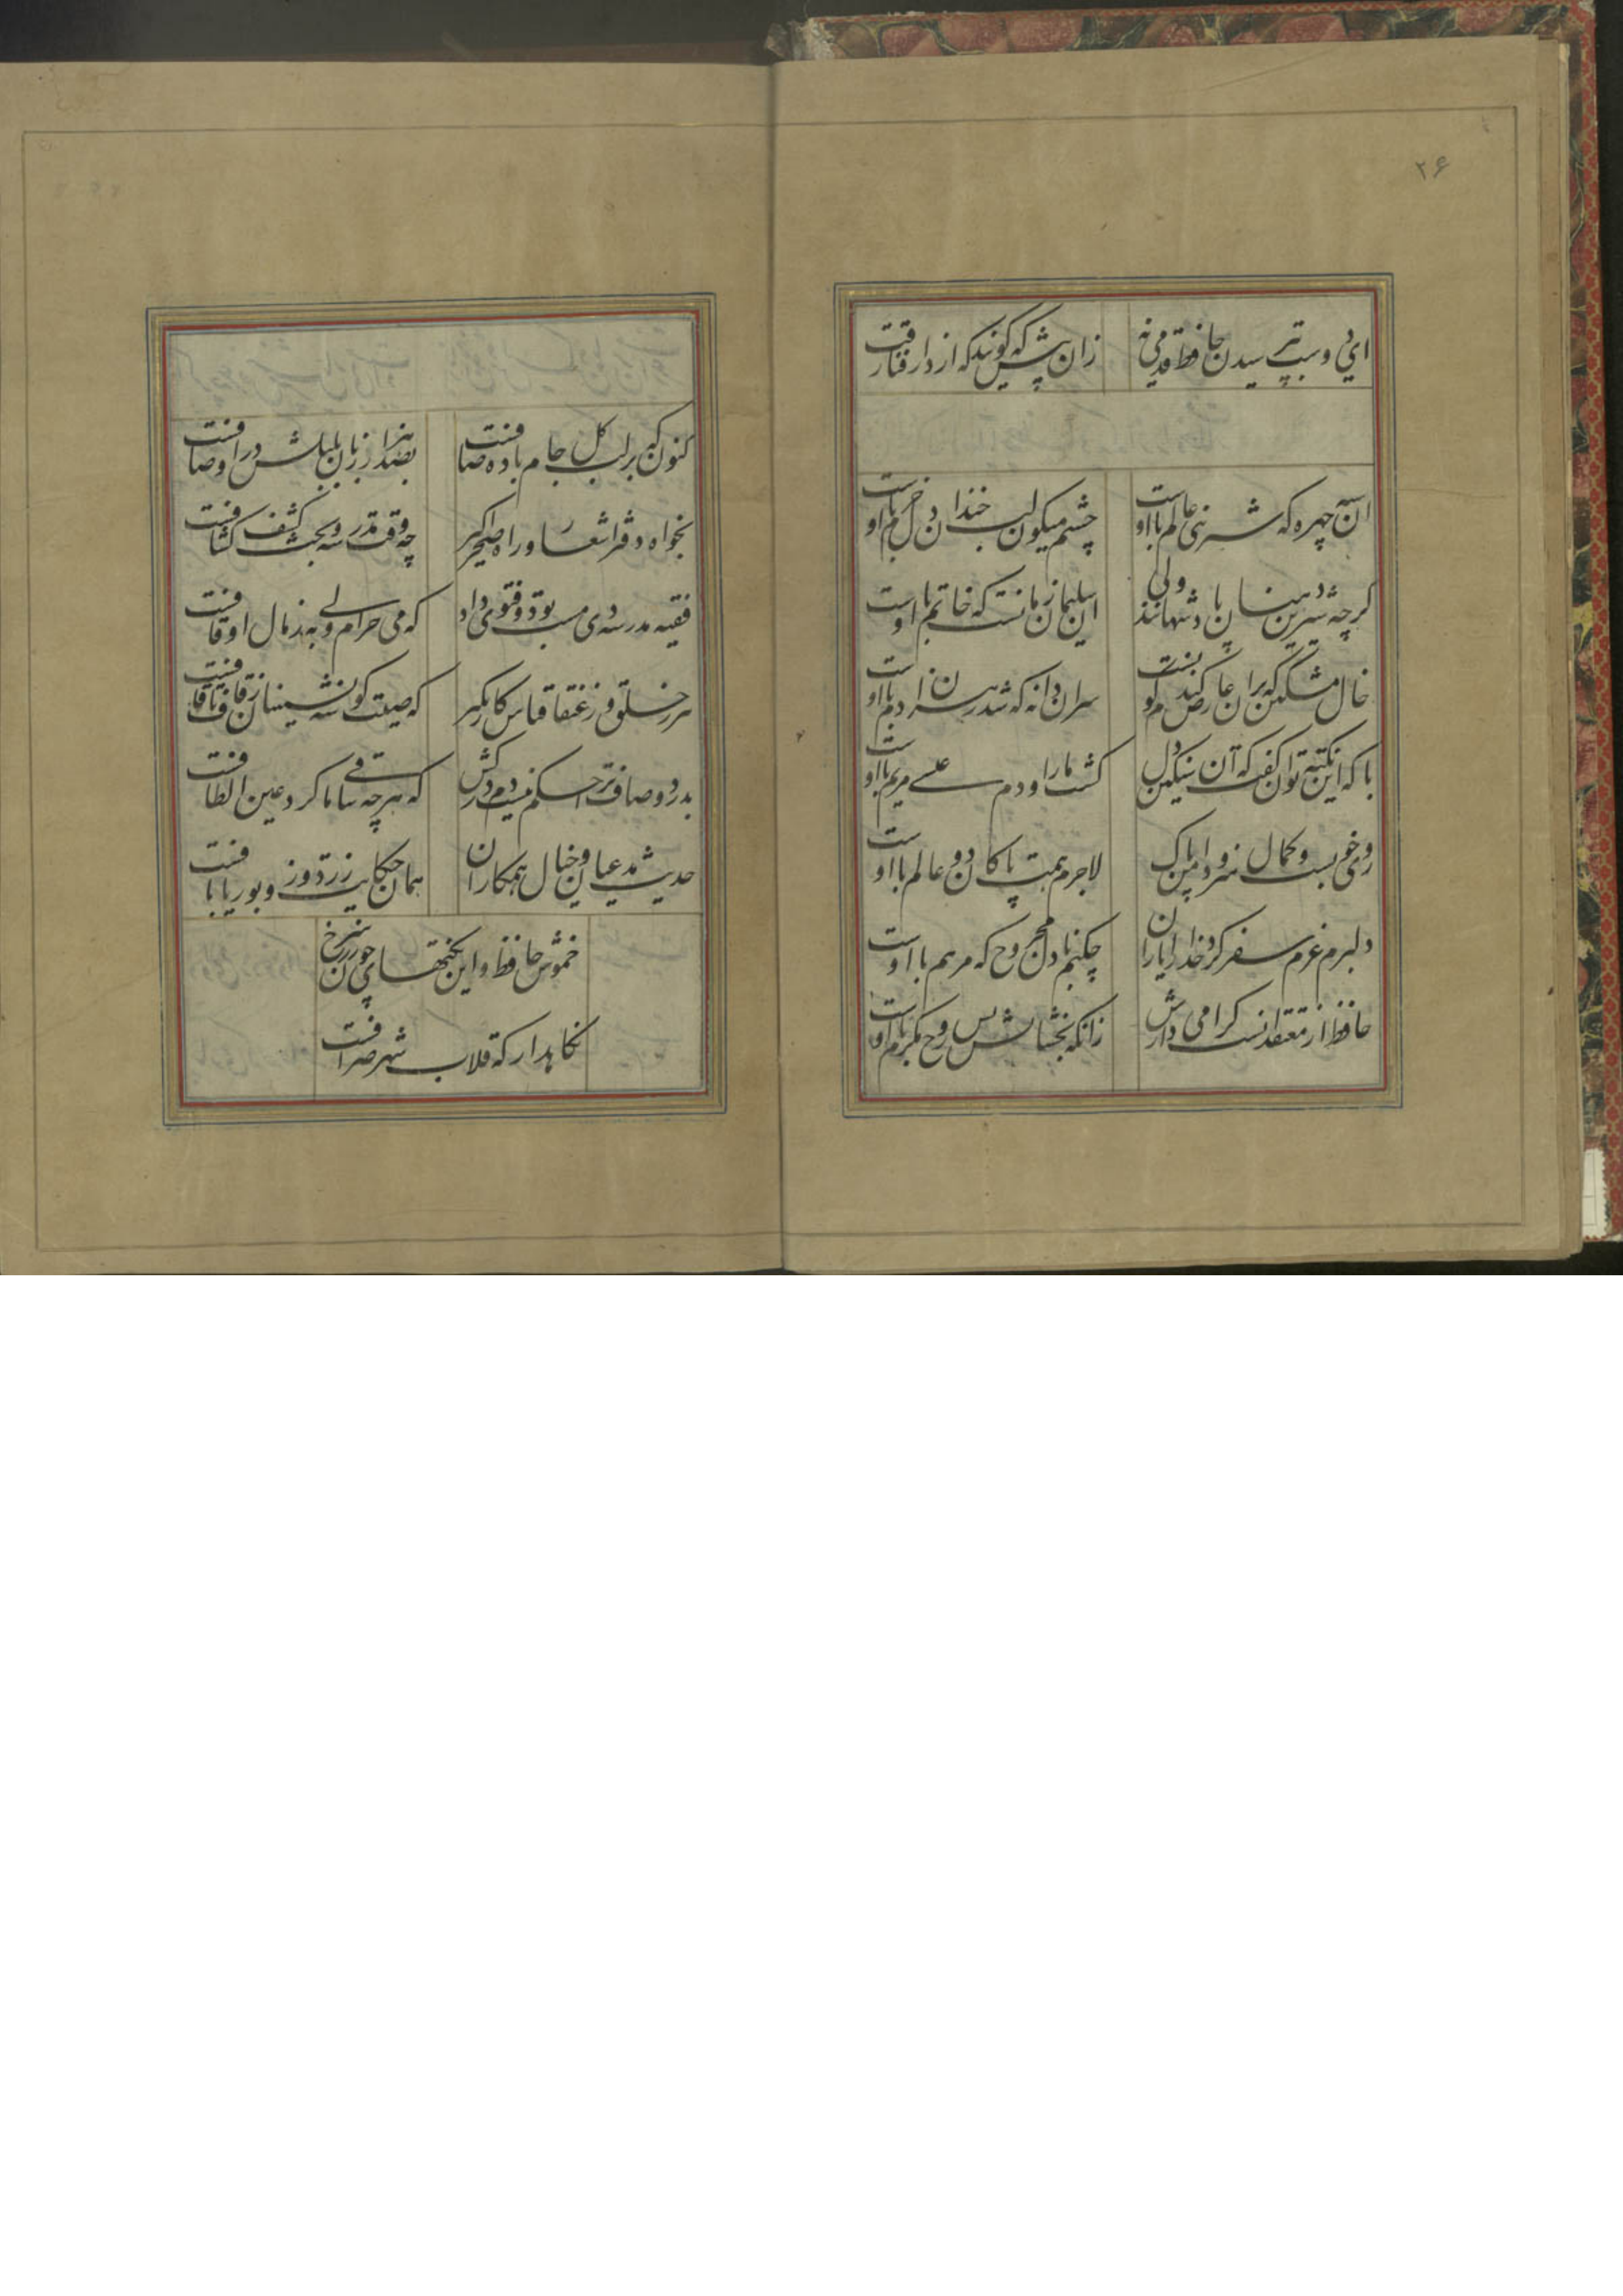 ۲۶
ای دوست بپرسیدن حافظ قدمی نه
زان پیش که گویند که از دار فنا رفت
آن سیه چهره که شیرینی عالم با اوست
چشم میگون لب خندان دل خرم با اوست
گرچه شیرین دهنان پادشهانند ولی
آن سلیمان زمانست که خاتم با اوست
خال مشکین که بران عارض گندم گونست
سر آن دانه که شد رهزن آدم با اوست
با که این نکته توان گفت که آن سنگین دل
کشت ما را و دم عیسی مریم با اوست
روی خوبست و کمال هنر و دامن پاک
لاجرم همت پاکان دو عالم با اوست
دلبرم عزم سفر کرد خدا را یاران
چکنم با دل مجروح که مرهم با اوست
حافظ از معتقدانست گرامی دارش
زانکه بخشایش بس روح مکرم با اوست
کنون که بر لب گل جام باده صافست
بصد هزار زبان بلبلش در اوصافست
بخواه دفتر اشعار و راه صحرا گیر
چه وقت مدرسه و بحث کشف کشافست
فقیه مدرسه دی مست بود و فتوی داد
که می حرام ولی به ز مال اوقافست
ببر ز خلق و ز عنقا قیاس کار بگیر
که صیت گوشه نشینان ز قاف تا قافست
بدرد و صاف ترا حکم نیست دم درکش
که هر چه ساقی ما کرد عین الطافست
حدیث مدعیان و خیال همکاران
همان حکایت زردوز و بوریا بافست
خموش حافظ و این نکتهای چون زر سرخ
نگاهدار که قلاب شهر صرافست